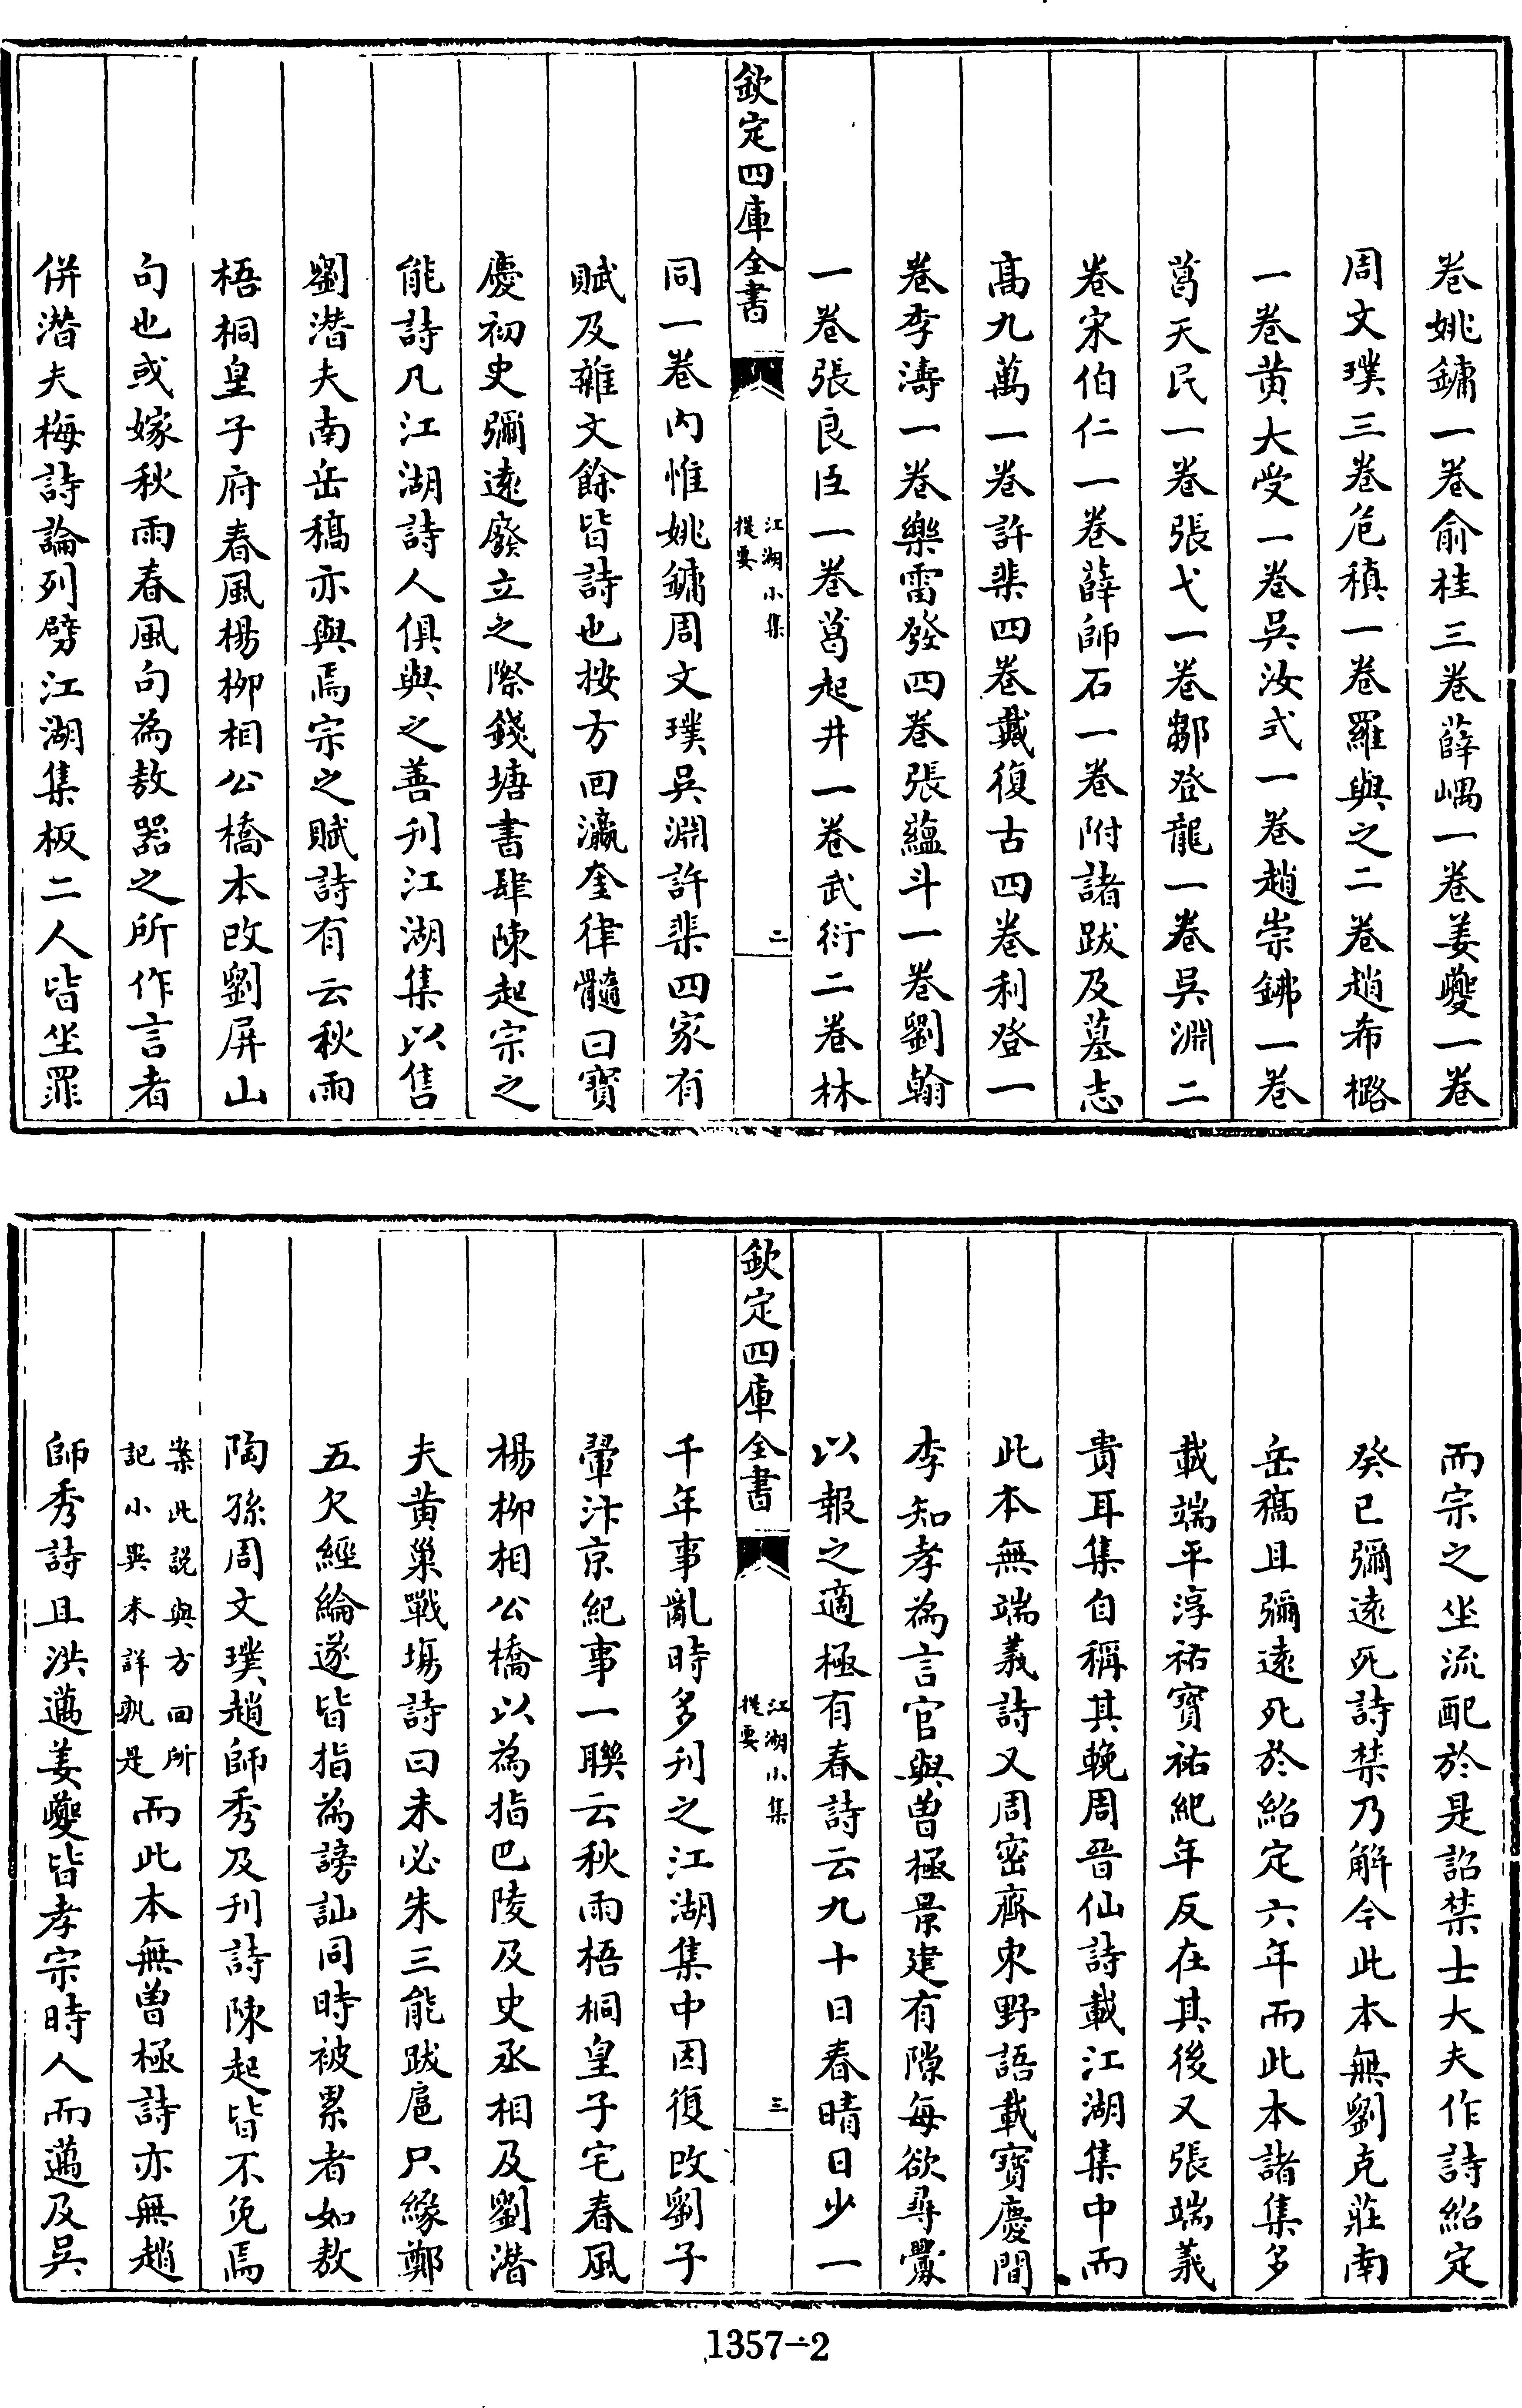 卷姚鏞一卷俞桂三卷薛嵎一卷姜夔一卷
周文璞三卷危稹一卷羅與之二卷趙希𣙇
一卷黃大受一卷吳汝弌一卷趙崇鉘一卷
葛天民一卷張弋一卷鄒登龍一卷吳淵二
卷宋伯仁一卷薛師石一卷附諸跋及墓志
高九萬一卷許棐四卷戴復古四卷利登一
卷李濤一卷樂雷發四卷張蘊斗一卷劉翰
一卷張良臣一卷葛起井一卷武衍二卷林
欽定四庫全書
江湖小集
提要
二
同一卷內惟姚鏞周文璞吳淵許棐四家有
賦及雜文餘皆詩也按方回瀛奎律髓曰寶
慶初史彌遠廢立之際錢塘書肆陳起宗之
能詩凡江湖詩人俱與之善刊江湖集以售
劉潛夫南岳稿亦與焉宗之賦詩有云秋雨
梧桐皇子府春風楊柳相公橋本改劉屏山
句也或嫁秋雨春風句為敖器之所作言者
併潛夫梅詩論列劈江湖集板二人皆坐罪
而宗之坐流配於是詔禁士大夫作詩紹定
癸巳彌遠死詩禁乃解今此本無劉克莊南
岳稿且彌遠死於紹定六年而此本諸集多
載端平淳祐寶祐紀年反在其後又張端義
貴耳集自稱其輓周晉仙詩載江湖集中而
此本無端義詩又周密齊東野語載寶慶間
李知孝為言官與曾極景建有隙每欲尋釁
以報之適極有春詩云九十日春晴日少一
欽定四庫全書
江湖小集
提要
三
千年事亂時多刊之江湖集中因復改劉子
翬汴京紀事一聯云秋雨梧桐皇子宅春風
楊柳相公橋以為指巴陵及史丞相及劉潛
夫黃巢戰場詩曰未必朱三能跋扈只緣鄭
五欠經綸遂皆指為謗訕同時被累者如敖
陶孫周文璞趙師秀及刊詩陳起皆不免焉
案此說與方回所
記小異未詳孰是
而此本無曾極詩亦無趙
師秀詩且洪邁姜夔皆孝宗時人而邁及吳
1357-2